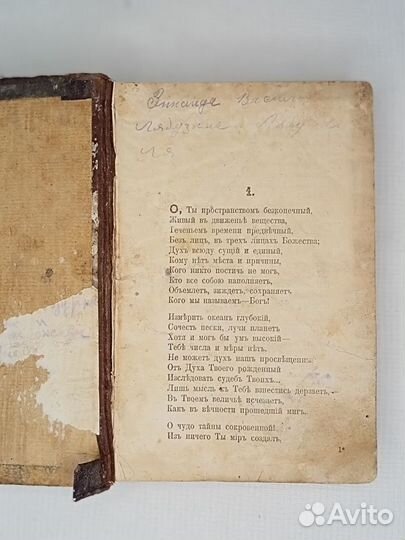 1.
О, Ты пространствомъ безконечный,
Живый въ движеньѣ вещества,
Теченьемъ времени предвѣчный,
Безъ лицъ, въ трехъ лицахъ Божества;
Духъ всюду сущій и единый,
Кому нѣтъ мѣста и причины,
Кого никто постичь не могъ,
Кто все собою наполняетъ,
Объемлетъ, зиждетъ, сохраняетъ
Кого мы называемъ—Богъ!
Измѣрить океанъ глубокій,
Сочесть пески, лучи планетъ
Хотя и могъ бы умъ высокій—
Тебѣ числа и мѣры нѣтъ.
Не можетъ духъ нашъ просвѣщенный
Отъ Духа Твоего рожденный
Изслѣдовать судебъ Твоихъ.,
Лишь мысль къ Тебѣ взнестись дерзаетъ,
Въ Твоемъ величьѣ исчезаетъ,
Какъ въ вѣчности прошедшій мигъ.
О чудо тайны сокровенной!
Изъ ничего Ты міръ создалъ,
1*
Avito